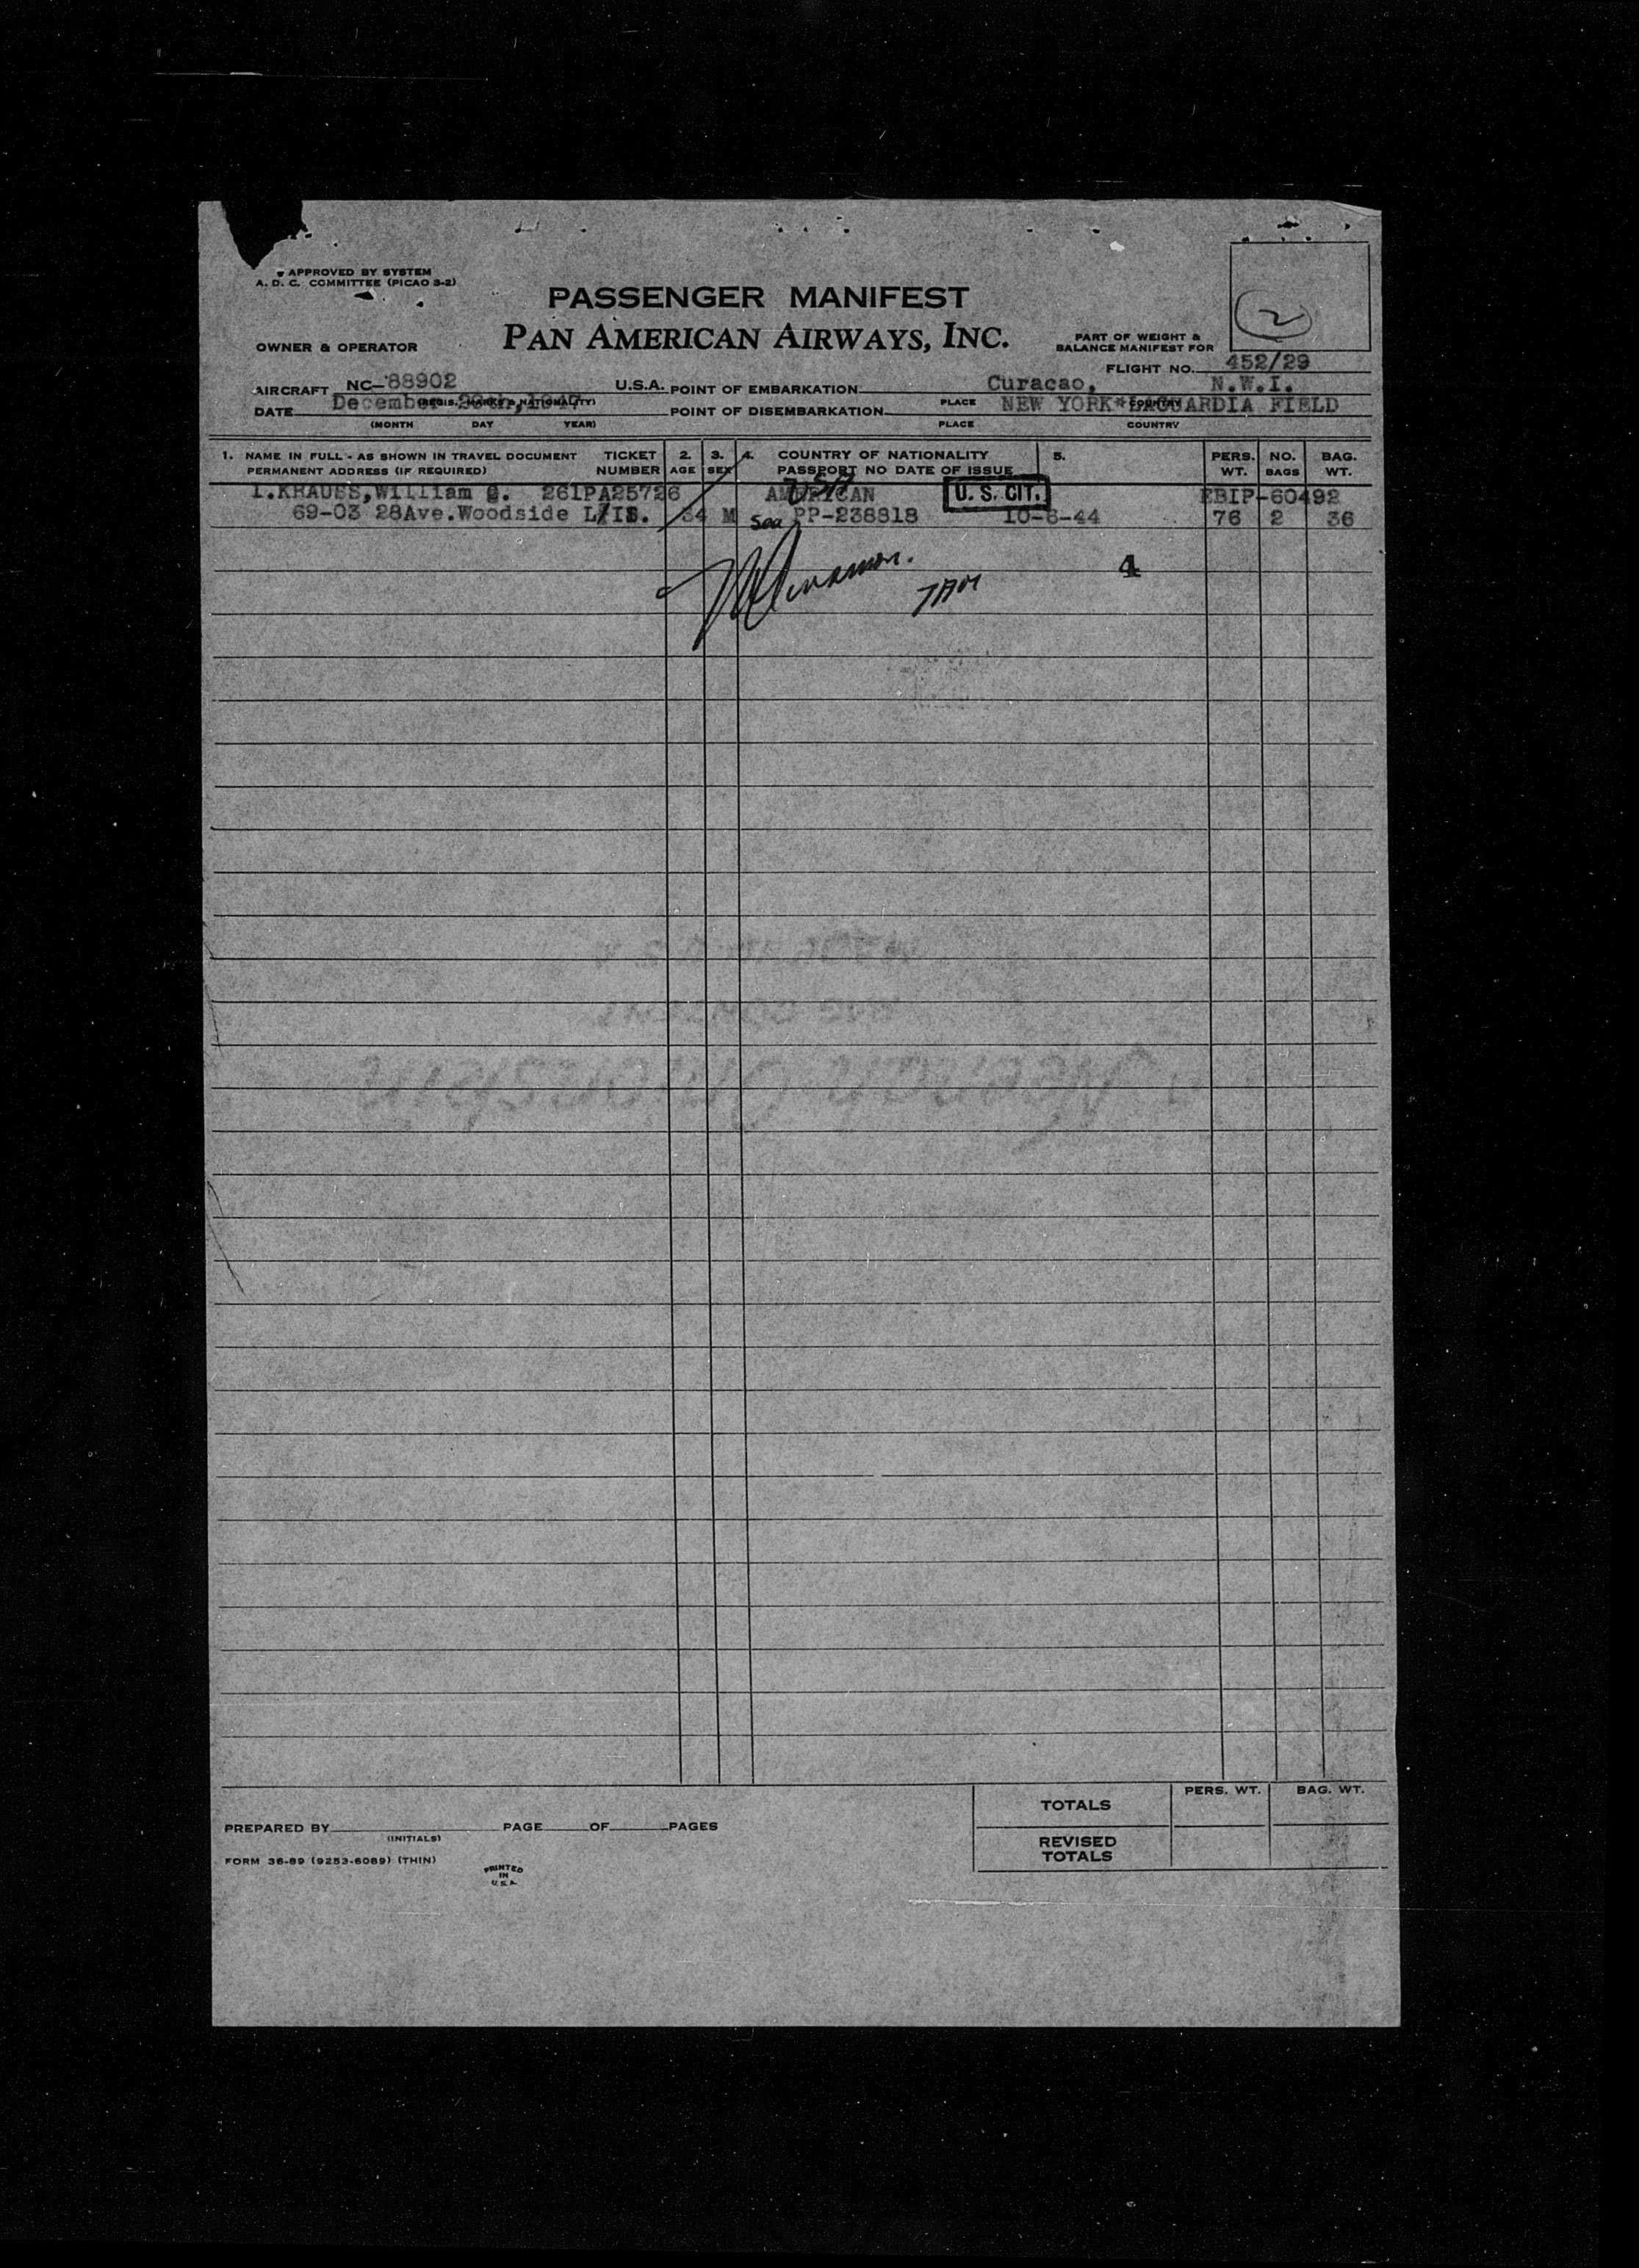 APPROVED BY SYSTEM
A. D. C. COMMITTEE (PICAO 3-2)
PASSENGER MANIFEST
OWNER & OPERATOR
PAN AMERICAN AIRWAYS, INC.
PART OF WEIGHT &
BALANCE MANIFEST FOR
2
FLIGHT NO. 452/29
AIRCRAFT NC-88902 U.S.A. POINT OF EMBARKATION Curacao, N.W.I.
(REGIS. MARKS & NATIONALITY) PLACE COUNTRY
DATE December 29th, 1947 POINT OF DISEMBARKATION NEW YORK*LAGUARDIA FIELD
(MONTH DAY YEAR) PLACE COUNTRY
1. NAME IN FULL - AS SHOWN IN TRAVEL DOCUMENT TICKET 2. 3. 4. COUNTRY OF NATIONALITY 5. PERS. NO. BAG.
PERMANENT ADDRESS (IF REQUIRED) NUMBER AGE SEX PASSPORT NO DATE OF ISSUE WT. BAGS WT.
USA
1.KRAUSS,William G. 261PA25726 AMERICAN U. S. CIT. EBIP-60492
69-03 28Ave.Woodside L/IS. 34 M Sea PP-238818 10-6-44 76 2 36
4
TOTALS PERS. WT. BAG. WT.
PREPARED BY PAGE OF PAGES
(INITIALS)
REVISED
TOTALS
FORM 36-89 (9253-6089) (THIN)
PRINTED
IN
U.S.A.